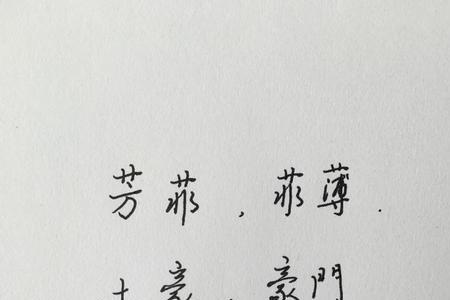 芳菲，菲薄.
土豪，豪門